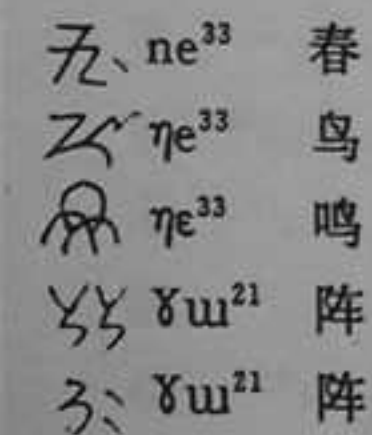 ne³³ 春
ηe³³ 鸟
ηɛ³³ 鸣
ɤɯ²¹ 阵
ɤɯ²¹ 阵